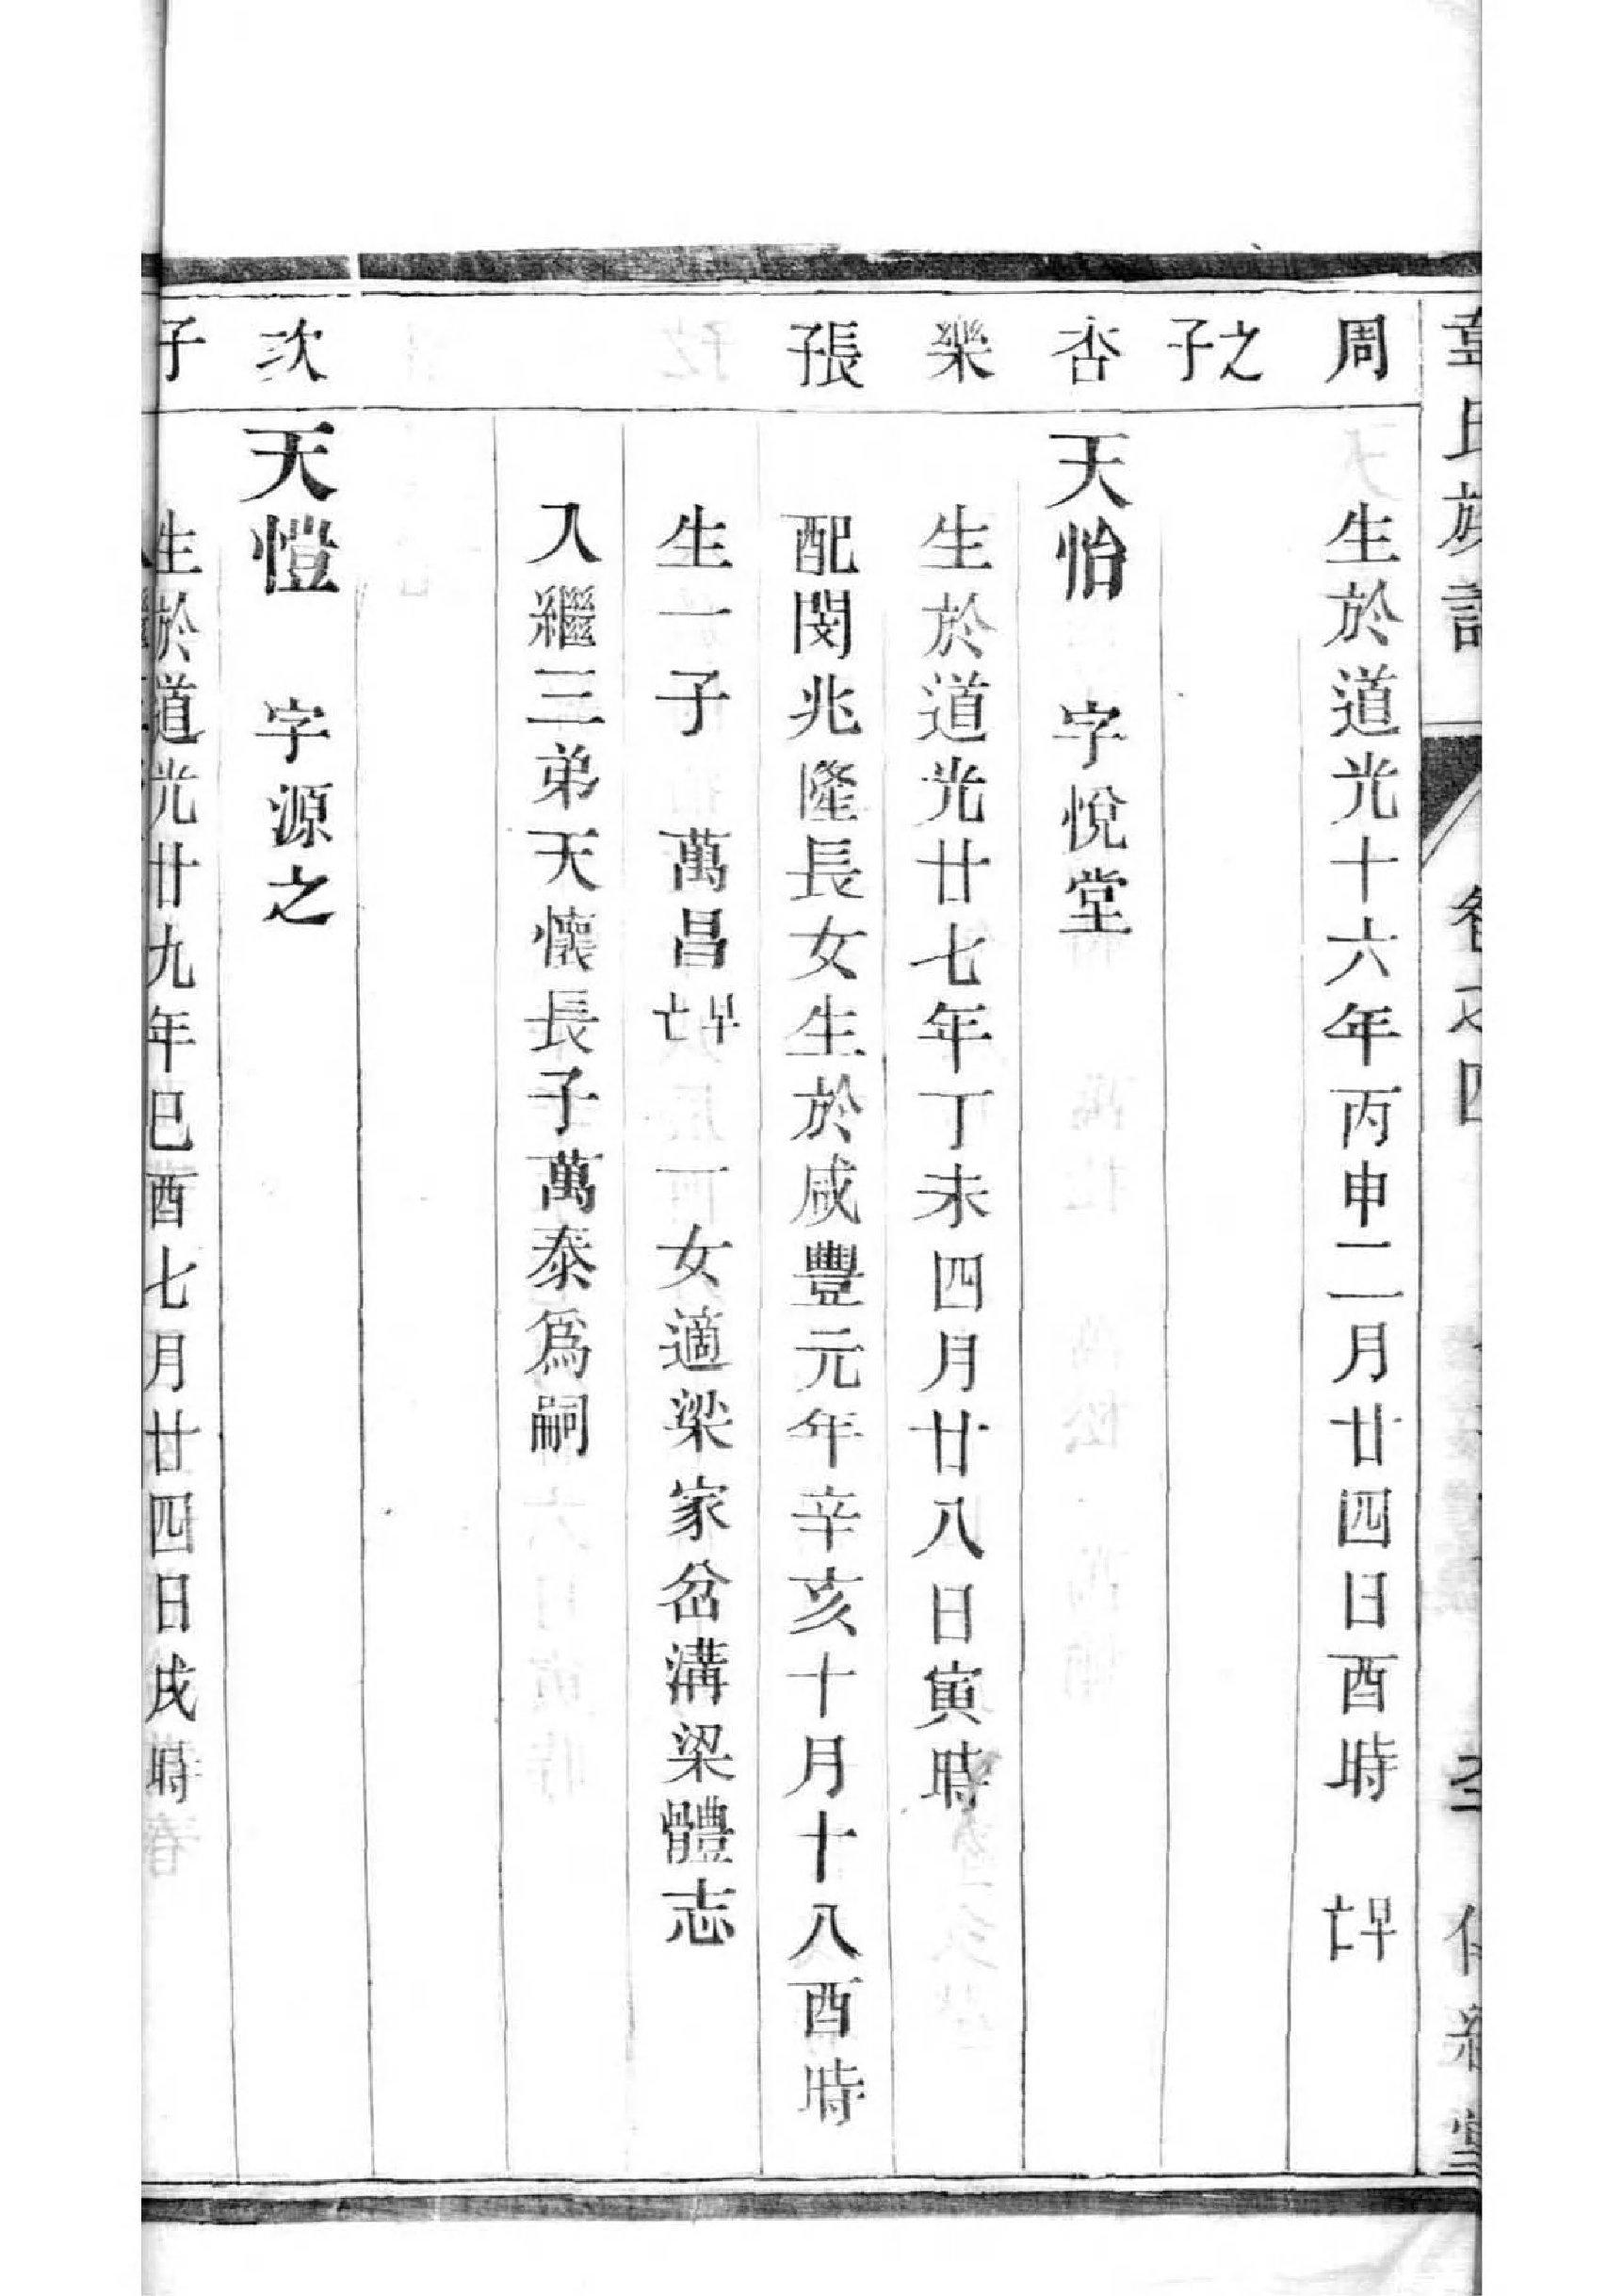 章氏族譜
卷之四
周
生於道光十六年丙申二月廿四日酉時 早亡
之子
杏
天怡 字悅堂
樂
生於道光廿七年丁未四月廿八日寅時
張
配閔兆隆長女生於咸豐元年辛亥十月十八酉時
生一子 萬昌早亡 一女適梁家岔溝梁體志
入繼三弟天懷長子萬泰爲嗣
次
天愷 字源之
子
生於道光廿九年巳酉七月廿四日戌時